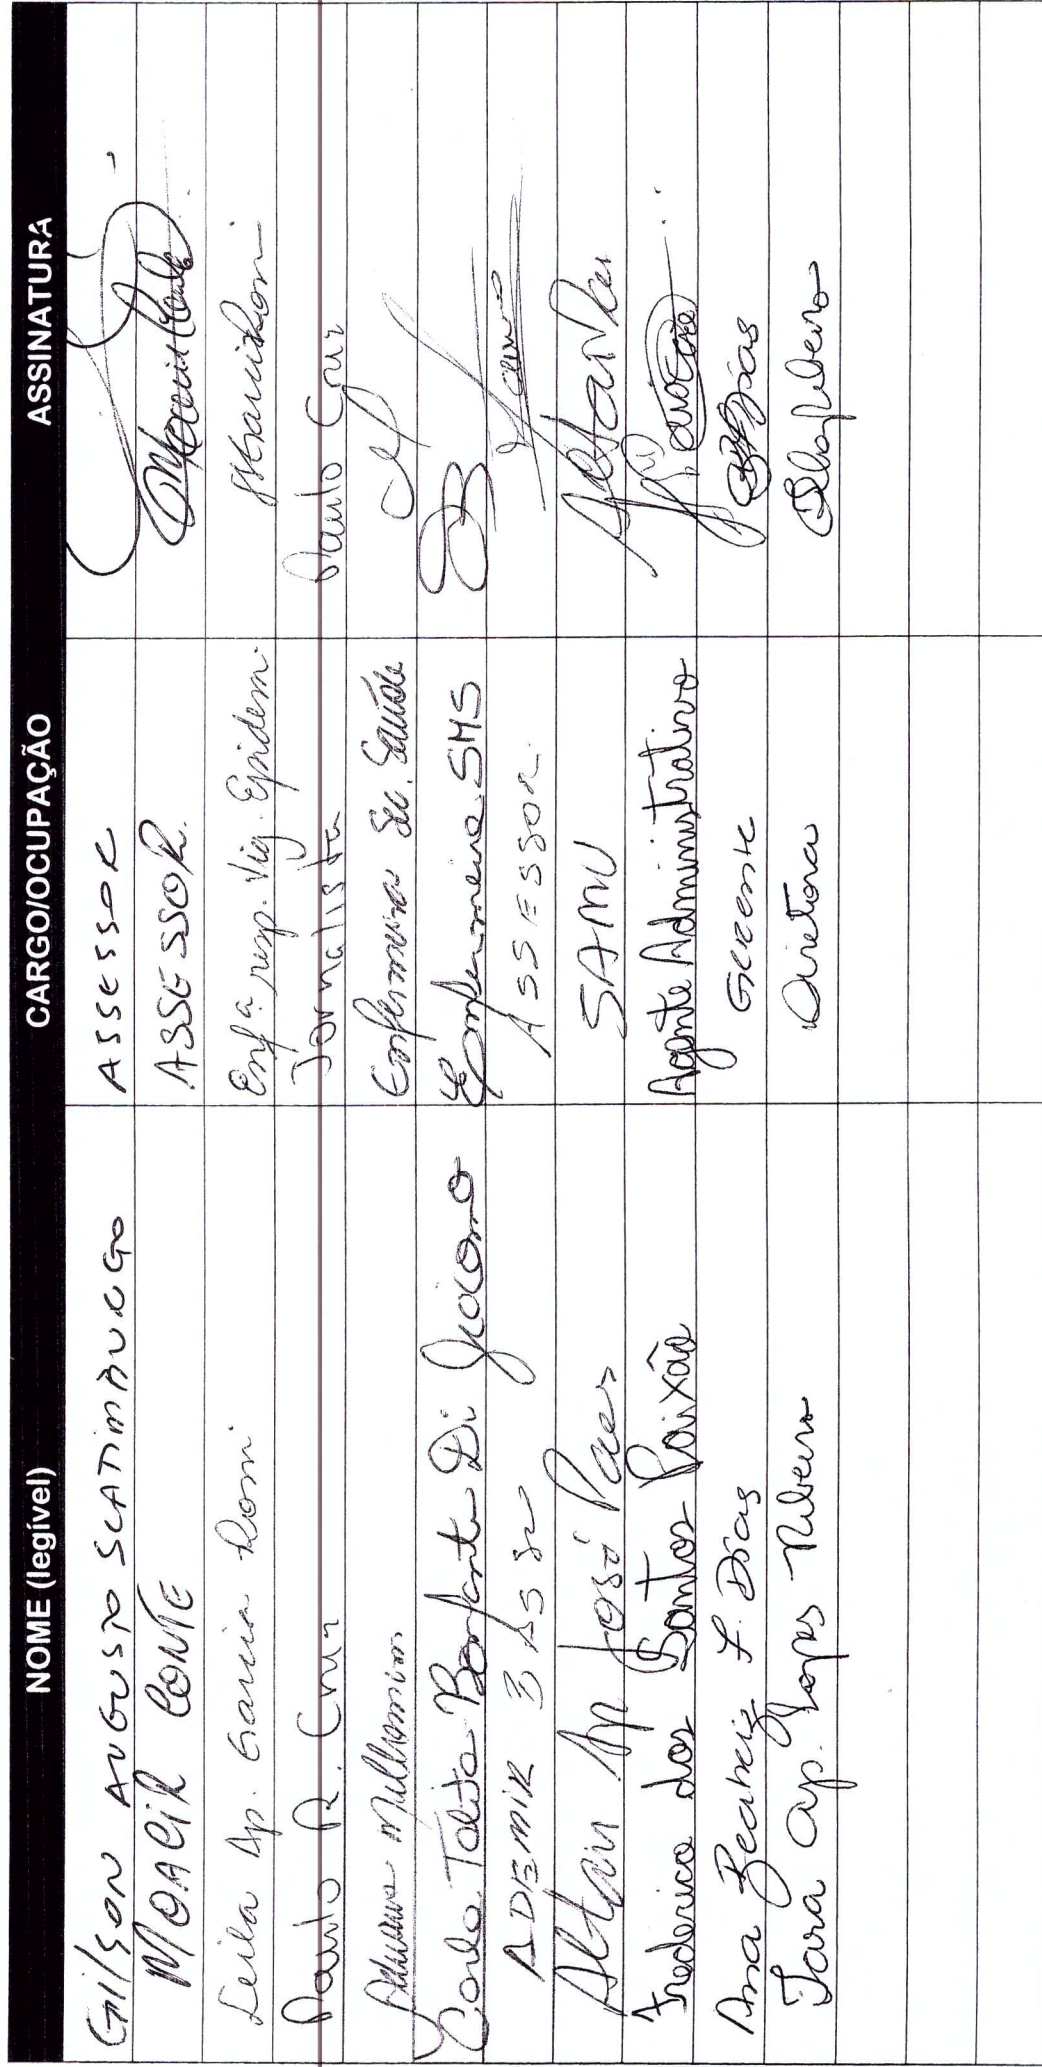 NOME (legível) CARGO/OCUPAÇÃO ASSINATURA
Gilson AUGUSTO SCATIMBURGO ASSESSOR
MOACIR CONTE ASSESSOR.
Leila Ap. Garcia Enfª resp. Vig. Epidem.
Paulo R. Cruz Jornalista Paulo Cruz
Enfermeira Sec. Saúde
Carla Talita Bonfante Di Giacomo Enfermeira SMS
ADEMIR ASSESSOR
Altair Ap José Paes SAMU Altair Paes
Frederico dos Santos Paixão Agente Administrativo
Ana Beatriz F. Dias Gerente
Iara Ap. Lopes Ribeiro Diretora